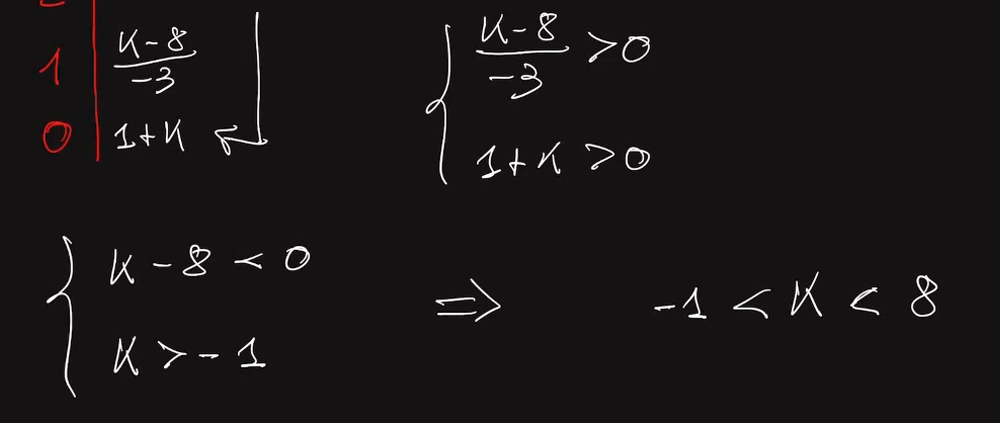 1 | K-8/-3
0 | 1+K
{ K-8/-3 > 0
1+K > 0
{ K - 8 < 0
K > - 1
⇒ -1 < K < 8